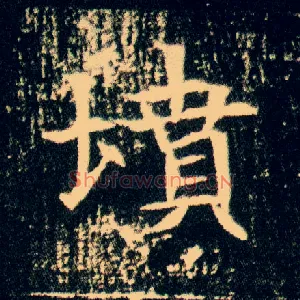 墳
Shufawang.CN